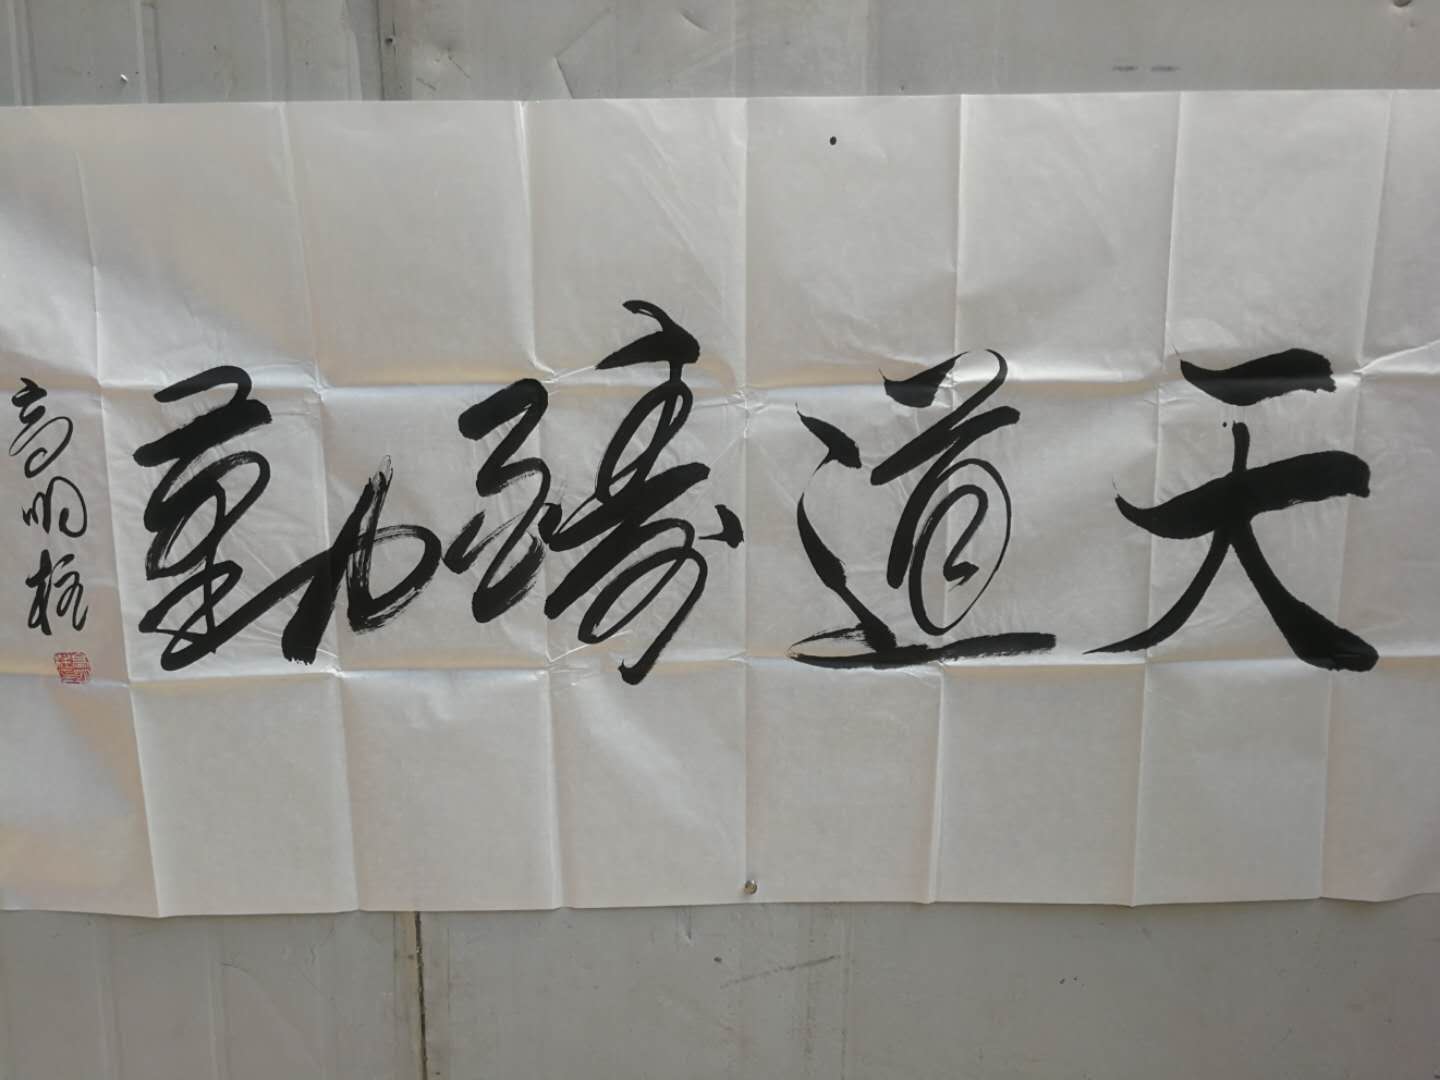 天道酬勤
高明柱